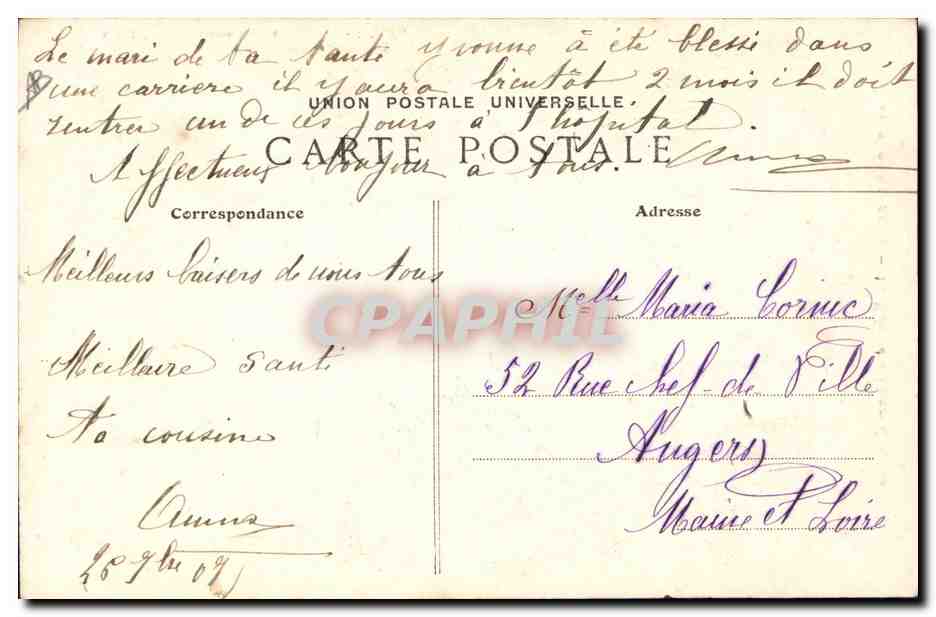 Le mari de ta tante Yvonne à été blessé dans
une carrière il y aura bientôt 2 mois il doit
UNION POSTALE UNIVERSELLE.
rentrer un de ces jours à l'hôpital.
CARTE POSTALE
Affectueux bonjour à tous.
Correspondance
Adresse
Meilleurs baisers de nous tous
Meilleure santé
Ta cousine
Melle Maria Cornic
52 Rue Chef-de Ville
Angers
Maine et Loire
CPAPHIL
7bre 07